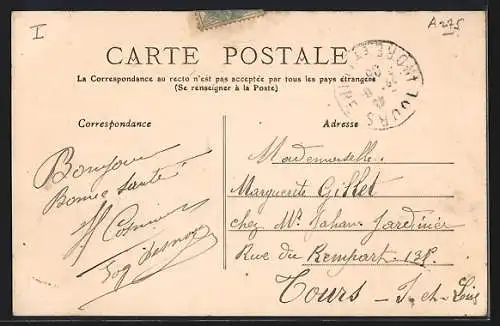 I
A 275
CARTE POSTALE
La Correspondance au recto n'est pas acceptée par tous les pays étrangers
(Se renseigner à la Poste)
TOURS
INDRE ET LOIRE
Correspondance
Adresse
Bonjour
Bonne santé
Mademoiselle
Marguerite Gillet
chez Mr Jahan Jardinier
Rue du Rempart
Tours - I-et-Loire